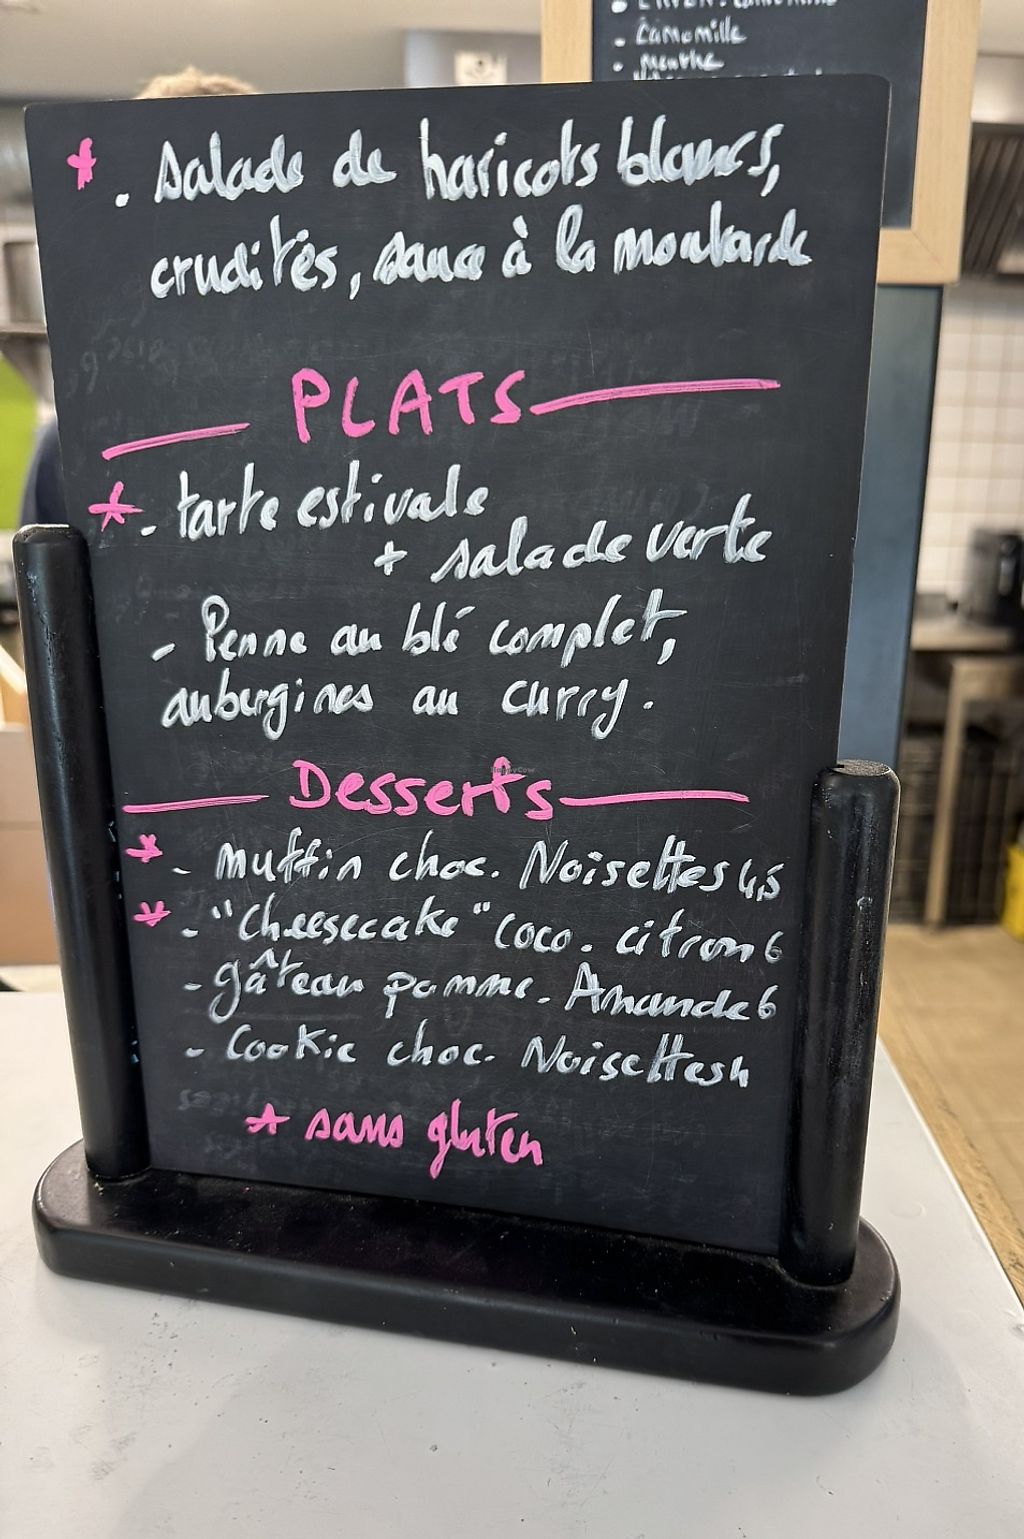 . Camomille
. menthe
* . Salade de haricots blancs,
crudités, sauce à la moutarde
PLATS
* . tarte estivale
+ salade verte
- Penne au blé complet,
aubergines au curry.
Desserts
* - muffin choc. Noisettes 4,5
* - "Cheesecake" coco. citron 6
- gâteau pomme. Amande 6
- Cookie choc. Noisettes 4
* sans gluten
HappyCow